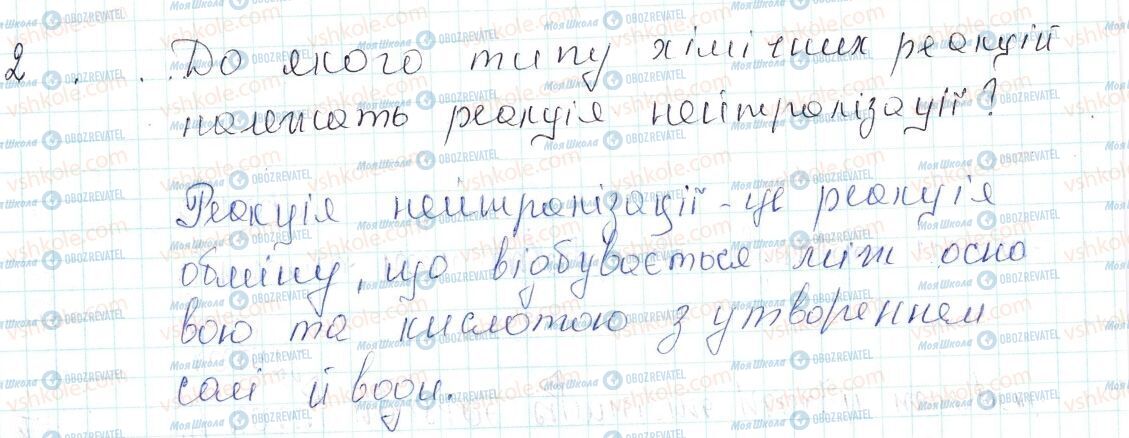 2 . . .До якого типу хімічних реакцій
належать реакція нейтралізації?
Реакція нейтралізації - це реакція
обміну, що відбувається між осно
вою та кислотою з утворенням
солі й води.